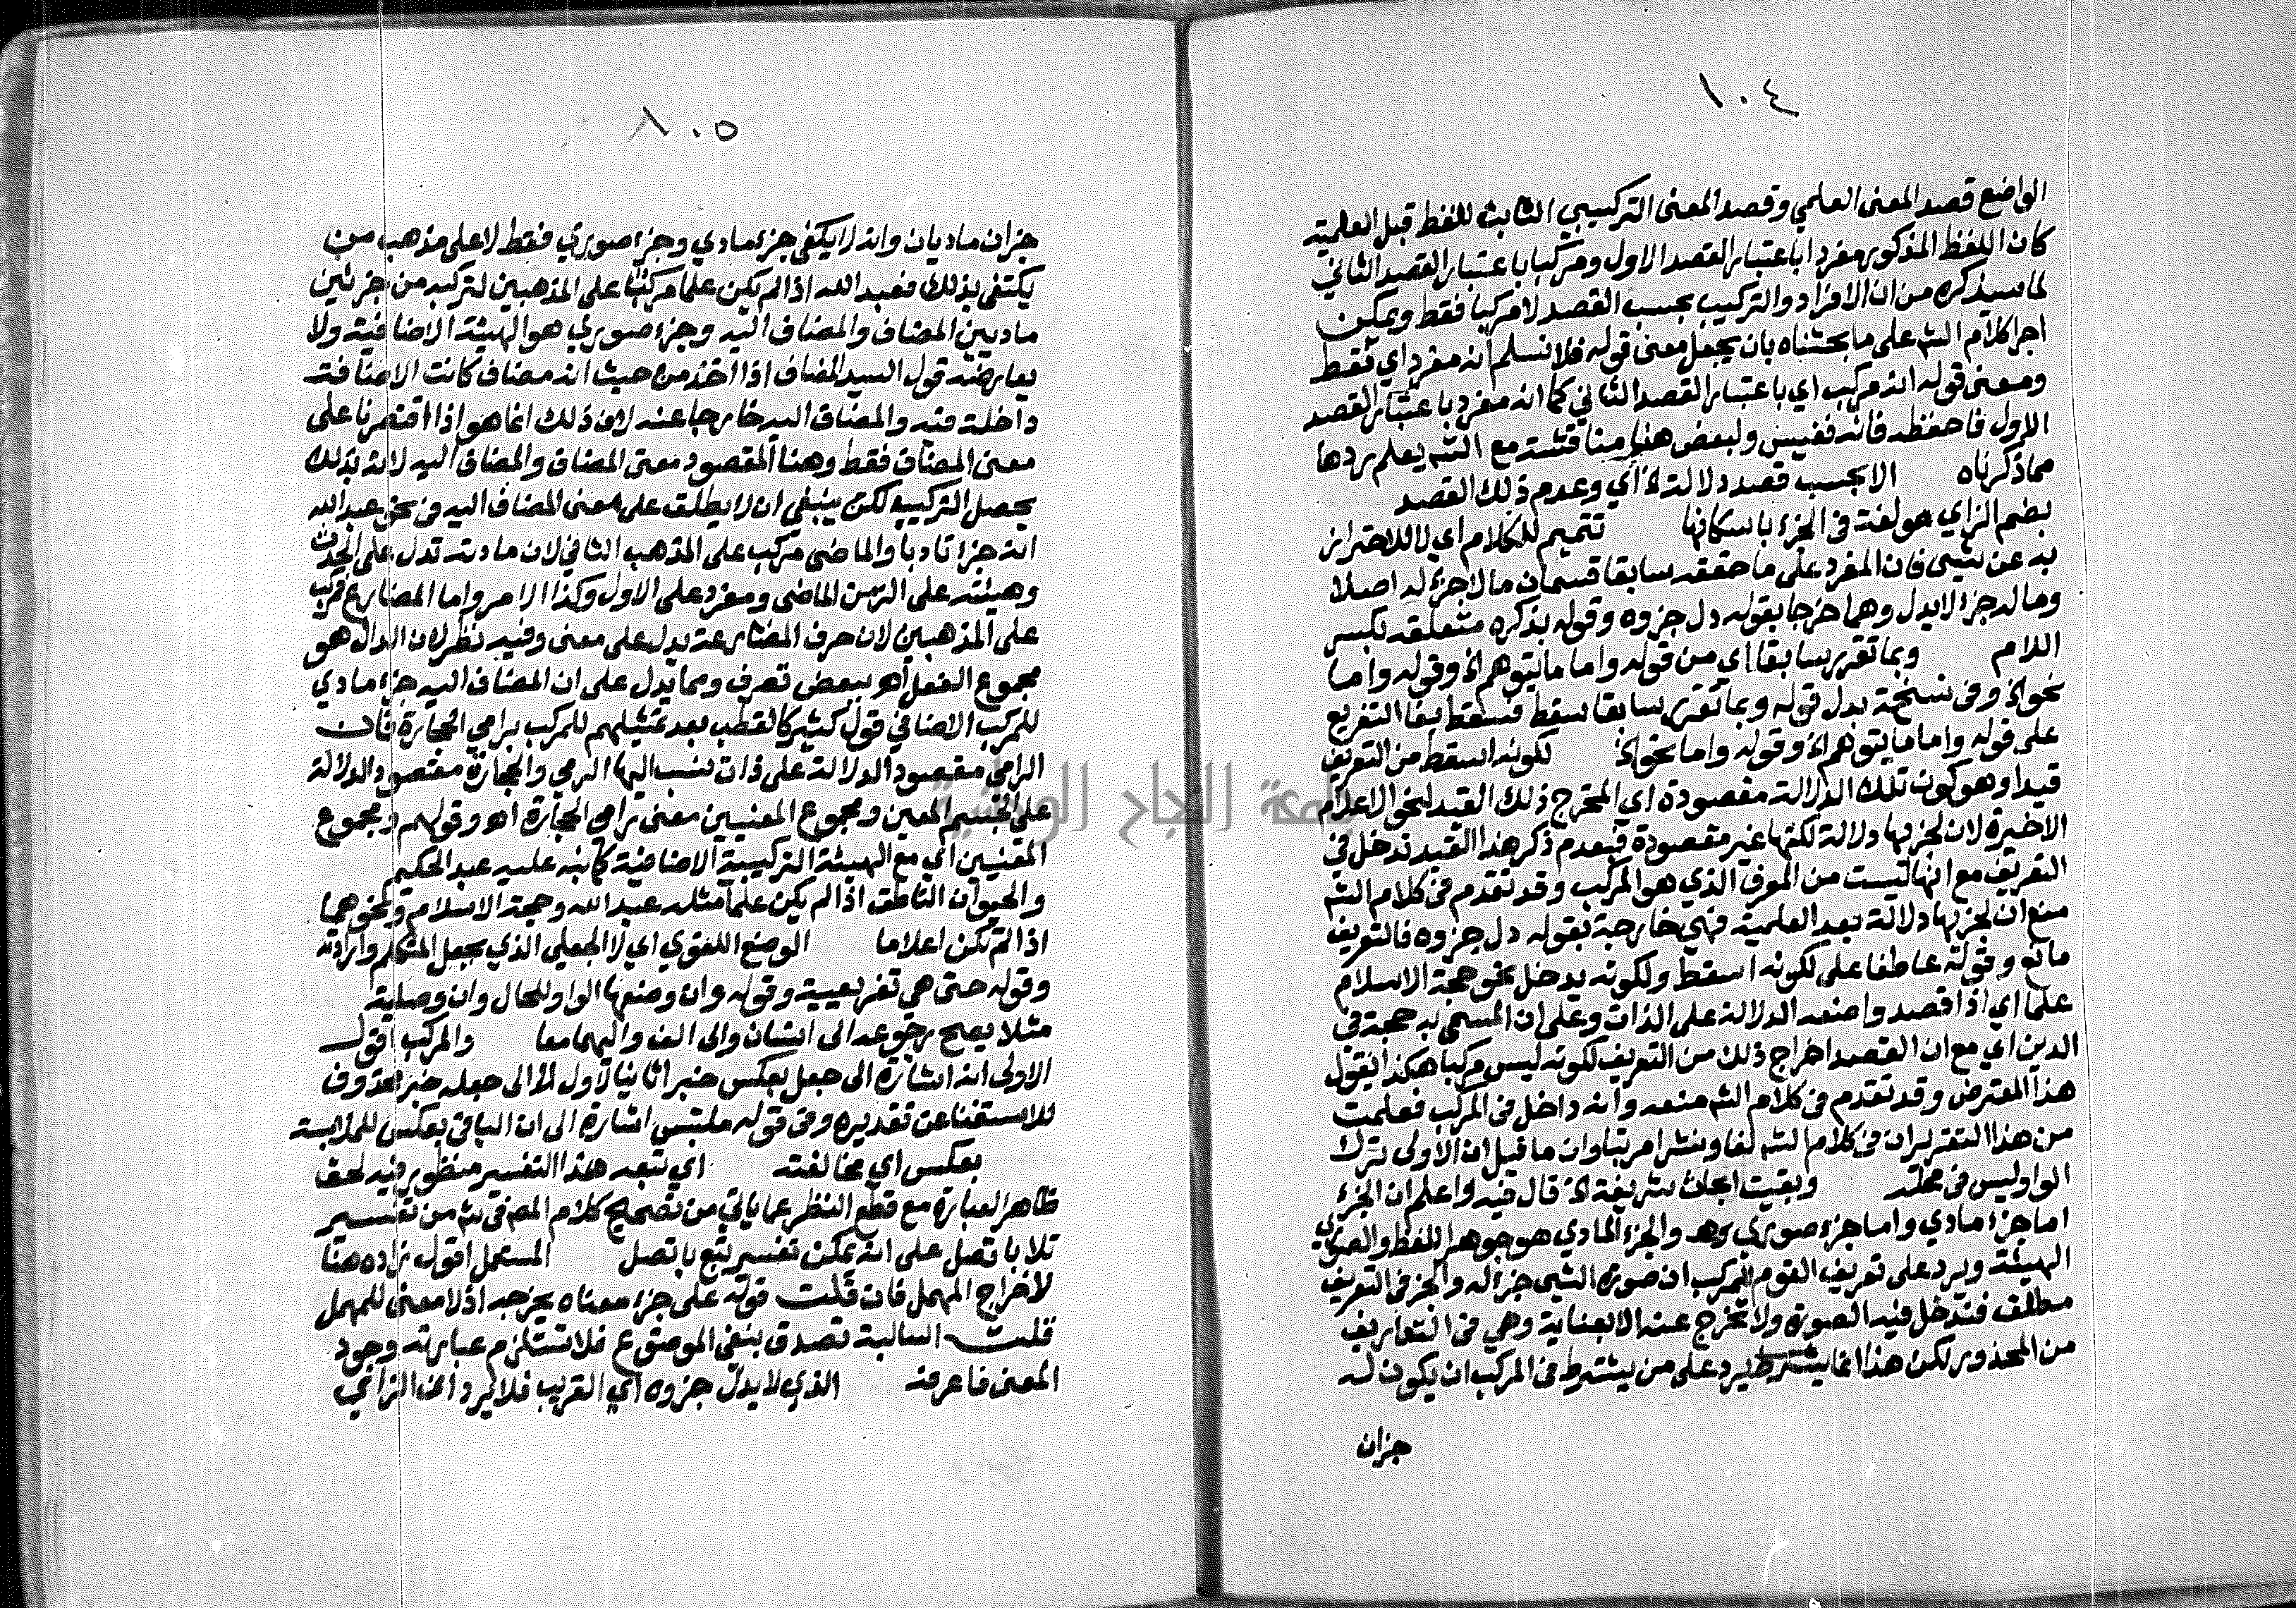 ١٠٤
الواضع قصد المعنى العلمي وقصد المعنى التركيبي الثابت للفظ قبل العلمية
كان اللفظ المذكور مفردا باعتبار القصد الاول ومركبا باعتبار القصد الثاني
لما سيذكره من ان الافراد والتركيب بحسب القصد لا مركبا فقط ويمكن
اجرا كلام الشم على ما بحثناه بان يجعل معنى قوله فلا نسلم انه مفرد اي فقط
ومعنى قوله انه مركب اي باعتبار القصد الثاني كما انه مفرد باعتبار القصد
الاول فاحفظه فانه نفيس ولبعض هنا مناقشة مع الشم يعلم ردها
مما ذكرناه الا بحسب قصد دلالته اي وعدم ذلك القصد
بضم الزاي هو لغة في الجزء باسكانها تتميم للكلام اي لا للاحتراز
به عن شيئ فان المفرد على ما حققه سابقا قسمان ما لا جزء له اصلا
وما له جزء لا يدل وهما خرجا بقوله دل جزوه وقوله بذكره متعلقه بكسر
اللام وبما تقرر سابقا اي من قوله واما ما يتوهم الخ وقوله واما
نحو الخ وفي نسخة بدل قوله وبما تقرر سابقا سقط فسقط بفا التفريع
على قوله واما ما يتوهم الخ وقوله واما نحو الخ لكونه اسقط من التعريف
قيدا وهو كون تلك الدلالة مقصودة اي المخرج ذلك القيد لنحو الاعلام
الاخيرة لان لجزئها دلالة لكنها غير مقصودة فبعدم ذكر هذا القيد تدخل في
التعريف مع انها ليست من المعرف الذي هو المركب وقد تقدم في كلام الشم
منع ان لجزئها دلالة بعد العلمية فهي خارجة بقوله دل جزوه فالتعريف
مانع وقوله عاطفا على لكونه اسقط ولكونه يدخل نحو حجة الاسلام
علما اي اذا قصد واضعه الدلالة على الذات وعلى ان المسمى به حجة في
الدين اي مع ان القصد اخراج ذلك من التعريف لكونه ليس مركبا هكذا يقول
هذا المعترض وقد تقدم في كلام الشم منعه وانه داخل في المركب فعلمت
من هذا التقرير ان في كلام الشم لفا ونشرا مرتبا وان ما قيل ان الاولى ترك
الواو ليس في محله وبقيت ابحاث شريفة الخ قال فيه واعلم ان الجزء
اما جزء مادي واما جزء صوري وهو والجزء المادي هو جوهر اللفظ والصوري
الهيئة ويرد على تعريف القوم للمركب ان صورة الشيئ جزء له والجزء في التعريف
مطلق فتدخل فيه الصورة ولا تخرج عنه الا بعناية وهي في التعاريف
من المحذور لكن هذا انما يرد على من يشترط في المركب ان يكون له
جزان
١٠٥
جزان ماديان وانه لا يكفي جزء مادي وجزء صوري فقط لا على مذهب من
يكتفي بذلك فعبد الله اذا لم يكن علما مركبا على المذهبين لتركبه من جزئين
ماديين المضاف والمضاف اليه وجزء صوري هو الهيئة الاضافية ولا
يعارضه قول السيد المضاف اذا اخذ من حيث انه مضاف كانت الاضافة
داخلة فيه والمضاف اليه خارجا عنه لان ذلك انما هو اذا اقتصرنا على
معنى المضاف فقط وهنا المقصود معنى المضاف والمضاف اليه لانه بذلك
يحصل التركيب لكن ينبغي ان لا يطلق على معنى المضاف اليه في نحو عبد الله
انه جزء تادبا والماضي مركب على المذهب الثاني لان مادته تدل على الحدث
وهيئته على الزمن الماضي ومفرد على الاول وكذا الامر واما المضارع فمركب
على المذهبين لان حرف المضارعة يدل على معنى وفيه نظر لان الدال هو
مجموع الفعل اهـ ببعض تصرف ومما يدل على ان المضاف اليه جزء مادي
للمركب الاضافي قول كثير كالقطب بعد تمثيلهم للمركب برامي الحجارة فان
الرامي مقصود الدلالة على ذات نسب اليها الرمي والحجارة مقصود الدلالة
على الجسم المعين ومجموع المعنيين معنى رامي الحجارة اهـ وقولهم ومجموع
المعنيين اي مع الهيئة التركيبية الاضافية كما نبه عليه عبد الحكيم
والحيوان الناطق اذا لم يكن علما مثله عبد الله وحجة الاسلام ونحوهما
اذا لم تكن اعلاما الوضع اللغوي اي لا الجعلي الذي بجعل المتكلم وارادته
وقوله حتى هي تفريعية وقوله وان وضعها الواو للحال وان وصلية
مثلا يصح رجوعه الى انسان والى الف واليهما معا والمركب اقول
الاولى انه اشارة الى جعل بعكس خبرا ثانيا لاول لا الى جعله خبر محذوف
للاستغنا عن تقديره وفي قوله ملتبس اشارة الى ان البا في بعكس للملابسة
بعكس اي مخالفة اي تبعد هذا التفسير منظور فيه لحق
ظاهر العبارة مع قطع النظر عما ياتي من تصحيح كلام المص في شم من تفسير
تلا باتصل على انه يمكن تفسير يتبع باتصل المستعمل اقول زاده هنا
لاخراج المهمل فان قلت قوله على جزء معناه يخرجه اذ لا معنى للمهمل
قلت السالبة تصدق بنفي الموضوع فلا تستلزم عبارته وجود
المعنى فاعرفه الذي لا يدل جزوه اي القريب فلا يرد ان الزاي